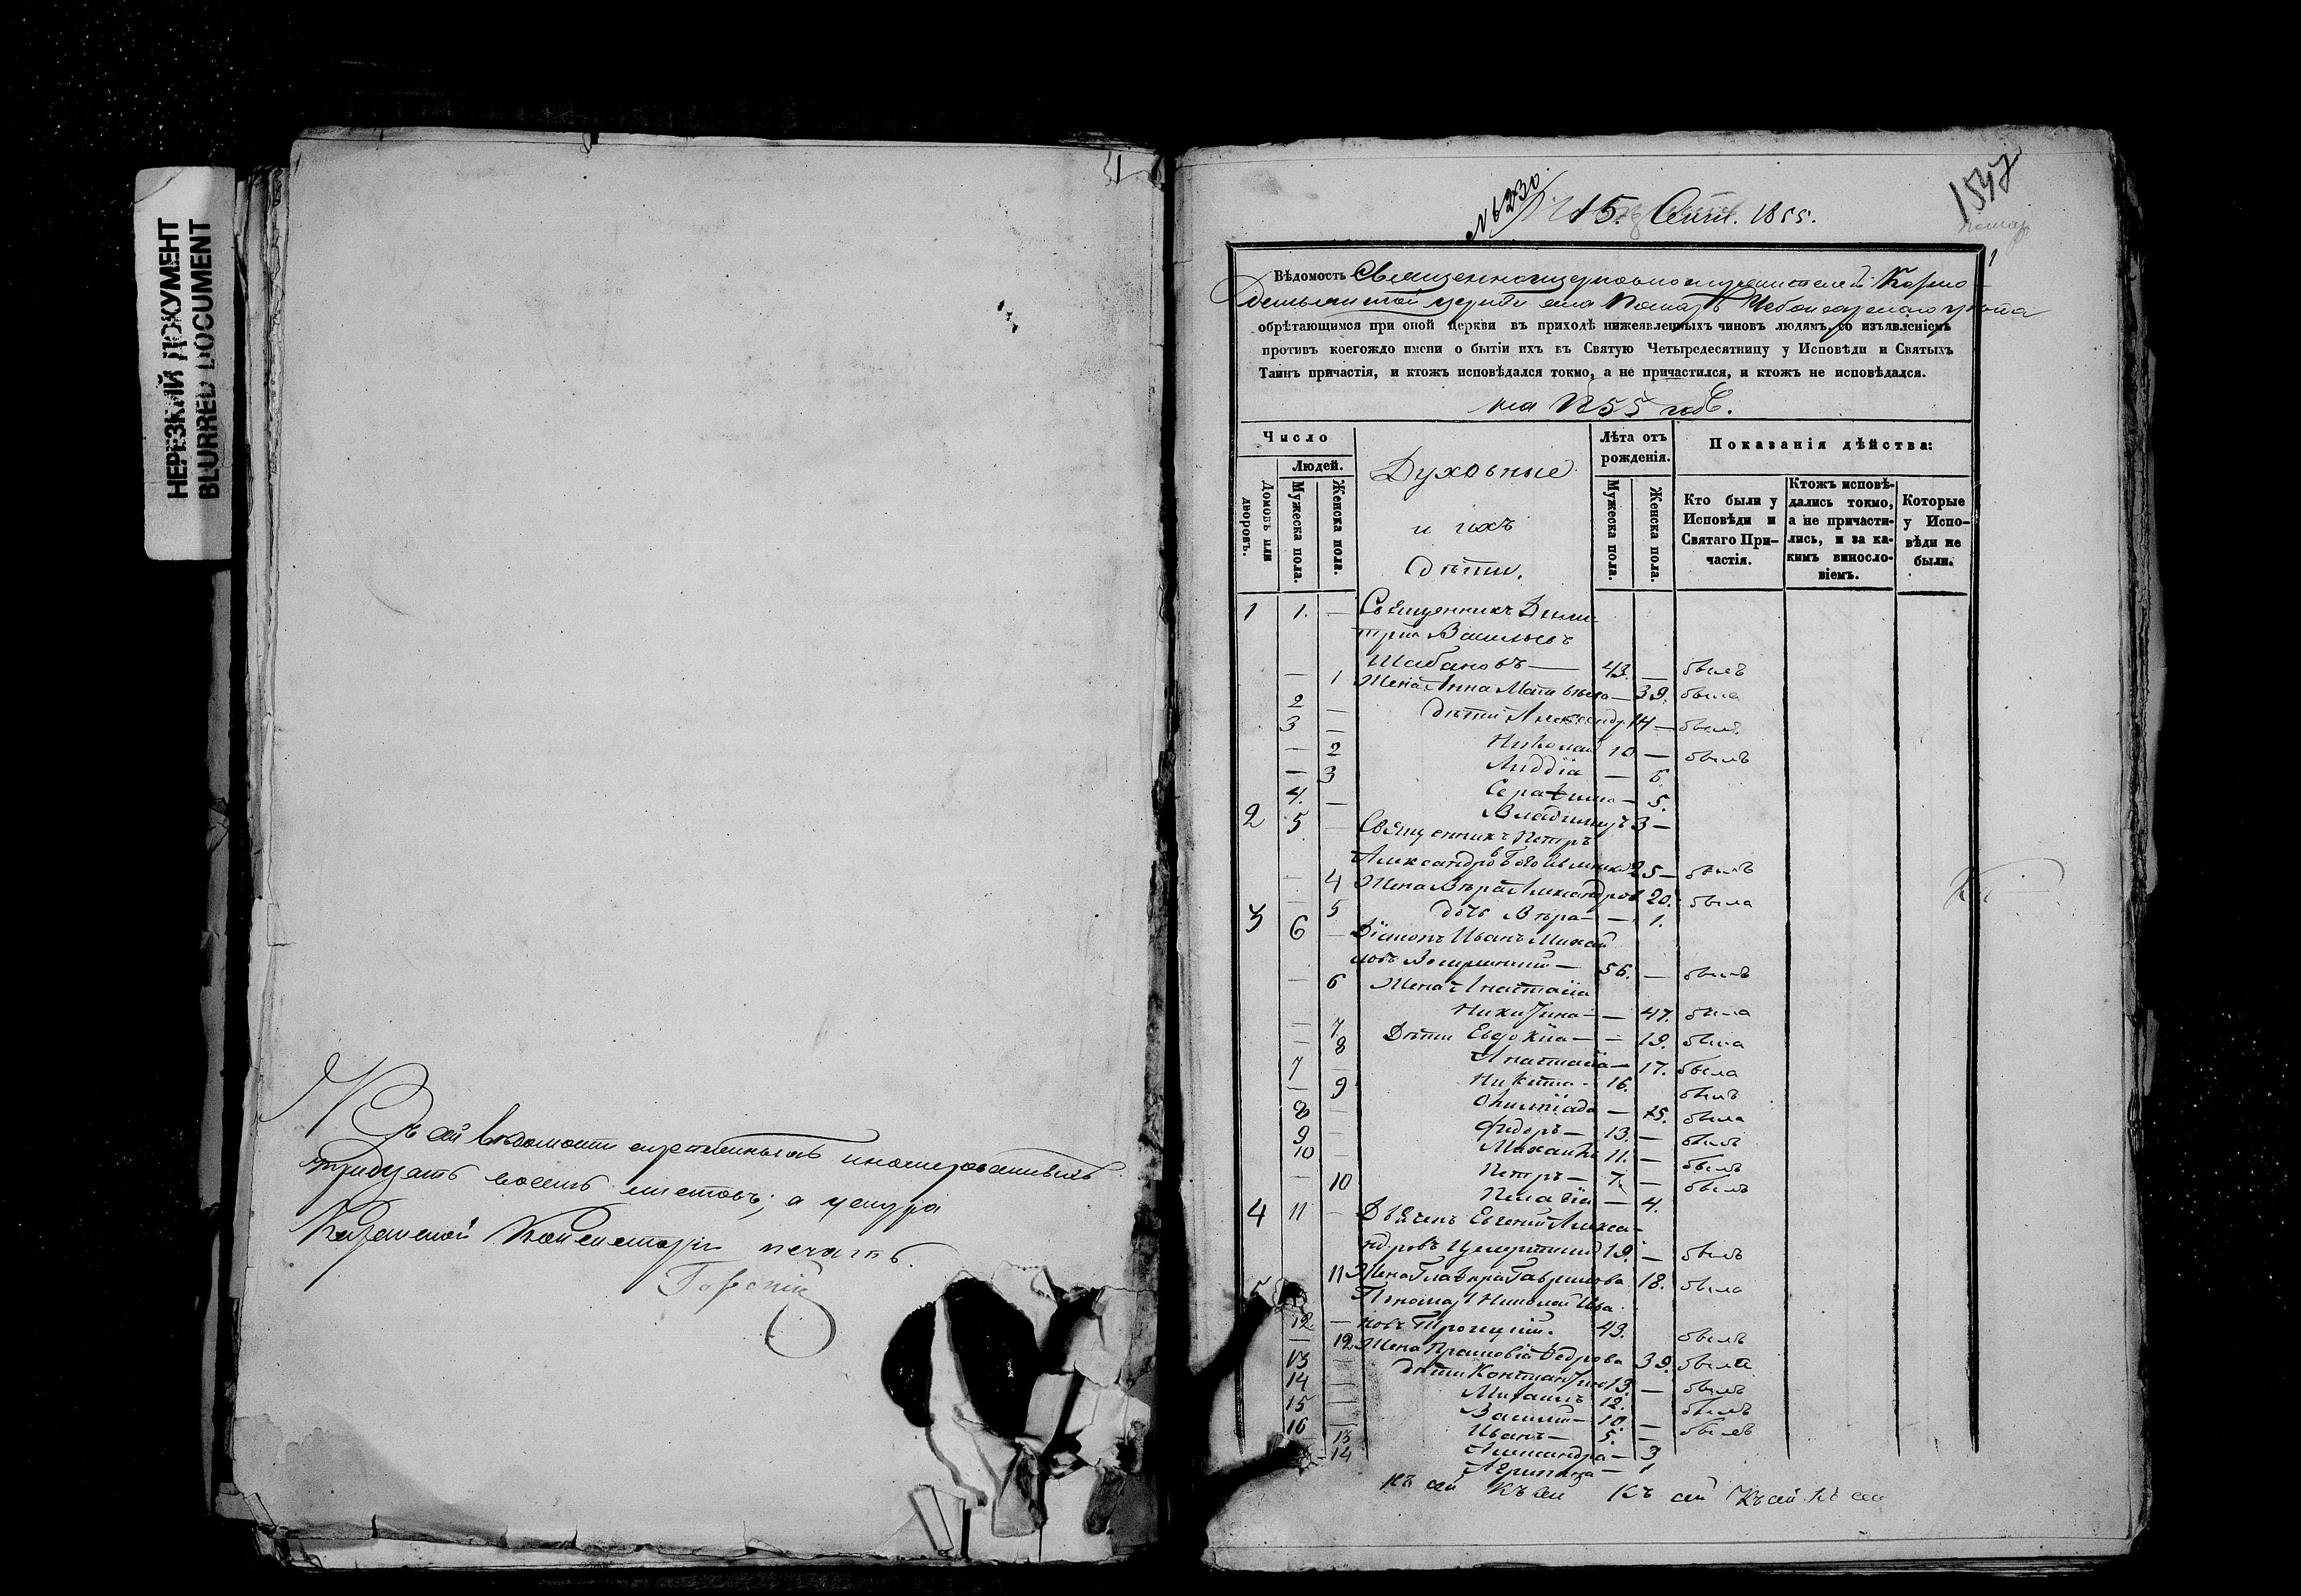 НЕРЕЗКИЙ ДОКУМЕНТ
BLURRED DOCUMENT
Къ сей вѣдомости
тридцать восемь листовъ; а у шнура
Казанской Консисторіи печать.
№ 230.
15. Сент. 1855.
1547
1
Вѣдомость Священноцерковнослужителей
церкви села Чебоксарскаго уѣзда
обрѣтающимся при оной церкви въ приходѣ нижеявленныхъ чиновъ людямъ, со изъявленіемъ
противъ коегождо имени о бытіи ихъ въ Святую Четыредесятницу у Исповѣди и Святыхъ
Таинъ причастія, и ктожъ исповѣдался токмо, а не причастился, и ктожъ не исповѣдался.
на 1855 годъ.
Число
Людей.
Домовъ или дворовъ.
Мужеска пола.
Женска пола.
Духовные
и ихъ
дѣти.
Лѣта отъ рожденія.
Мужеска пола.
Женска пола.
Показанія дѣйства:
Кто были у Исповѣди и Святаго При-частія.
Ктожъ исповѣ-дались токмо, а не причасти-лись, и за ка-кимъ винослo-віемъ.
Которые у Испо-вѣди не были.
1 1. — Священникъ Дими-
трій Васильевъ
Шабановъ — 43. — былъ
— 1 Жена Анна Матвѣева — 39. была
2 — дѣти Александръ 14 — былъ
3 — Николай 10 — былъ
— 2 Лидія — 6.
— 3 Серафима — 5.
4. — Владиміръ 3 —
2 5 — Священникъ Петръ
Александровъ 25 — былъ
— 4 Жена Вѣра Александрова 20. была
— 5 дочь Вѣра — 1.
3 6 — Діаконъ Иванъ Михай
ловъ 56. — былъ
— 6 Жена Анастасія
Никитина — 47. была
— 7 Дѣти Евдокія — 19. была
— 8 Анастасія — 17. была
7 — Никита — 16. былъ
— 9 Олимпіада — 15. была
8 — Федоръ — 13. — былъ
9 — Михаилъ 11. — былъ
10 — Петръ — 7. — былъ
— 10 Пелагія — 4.
4 11 — Дьячекъ Евгеній Алекса-
ндровъ 19. — былъ
11 Жена Глафира Гаврилова 18. была
5 Пономарь Николай Ива
12. — новъ Троицкій. 43. былъ
— 12 Жена Прасковія Федрова 39. была
13 — дѣти Константинъ 13. — былъ
14 — Михаилъ 12. былъ
15 — Василій — 10 — былъ
16 — Иванъ — 5. —
13 Александра — 3
14 Агрипина — 1
Къ сей Къ сей Къ сей Къ сей Къ сей